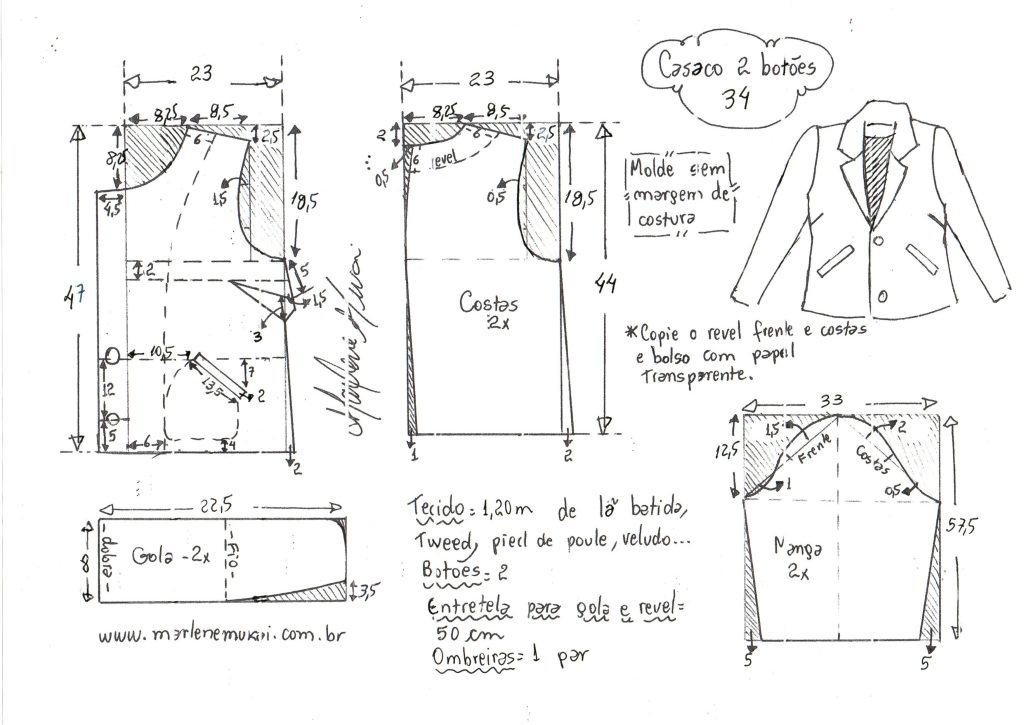 Casaco 2 botões
34
Molde sem
margem de
costura
*Copie o revel frente e costas
e bolso com papel
Transparente.
23
8,25
8,5
6
2,5
8,25
4,5
1,5
18,5
47
2
5
1,5
3
10,5
13,5
7
2
12
5
6
4
2
23
8,25
8,5
2
6
2,5
6
revel
0,5
0,5
18,5
44
Costas
2x
1
2
33
12,5
1,5
Frente
2
Costas
1
0,5
57,5
Manga
2x
5
5
22,5
8
-dobra-
Gola - 2x
-Fio-
3,5
www.marlenemukai.com.br
Tecido = 1,20m de lã batida,
Tweed, pied de poule, veludo...
Botões = 2
Entretela para gola e revel =
50 cm
Ombreiras = 1 par